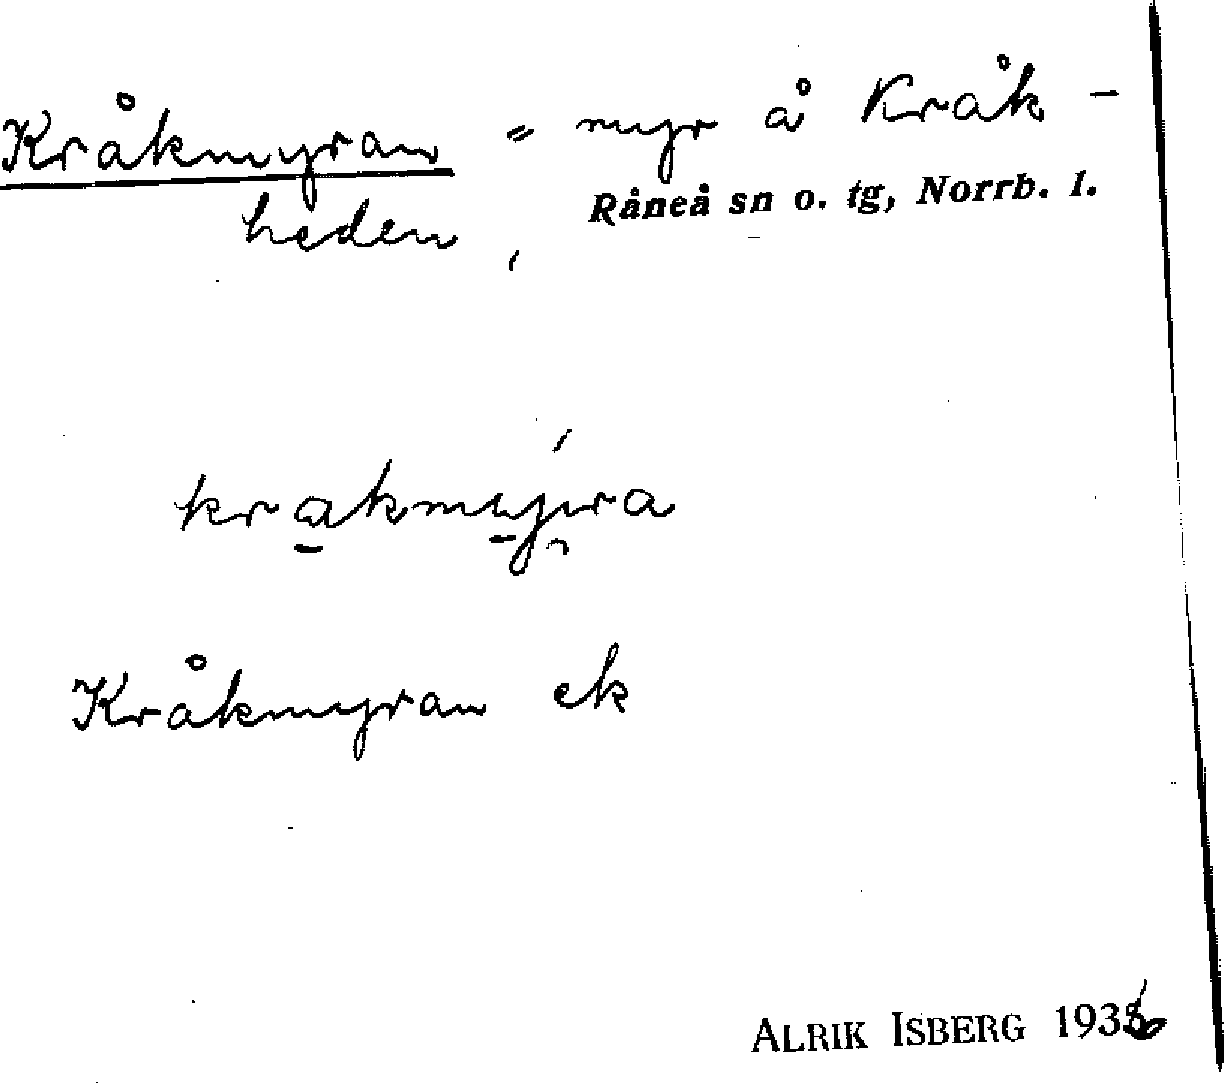 Kråkmyran = myr å Kråk-
heden, Råneå sn o. tg, Norrb. l.
krakmyira
Kråkmyran ek
ALRIK ISBERG 1936